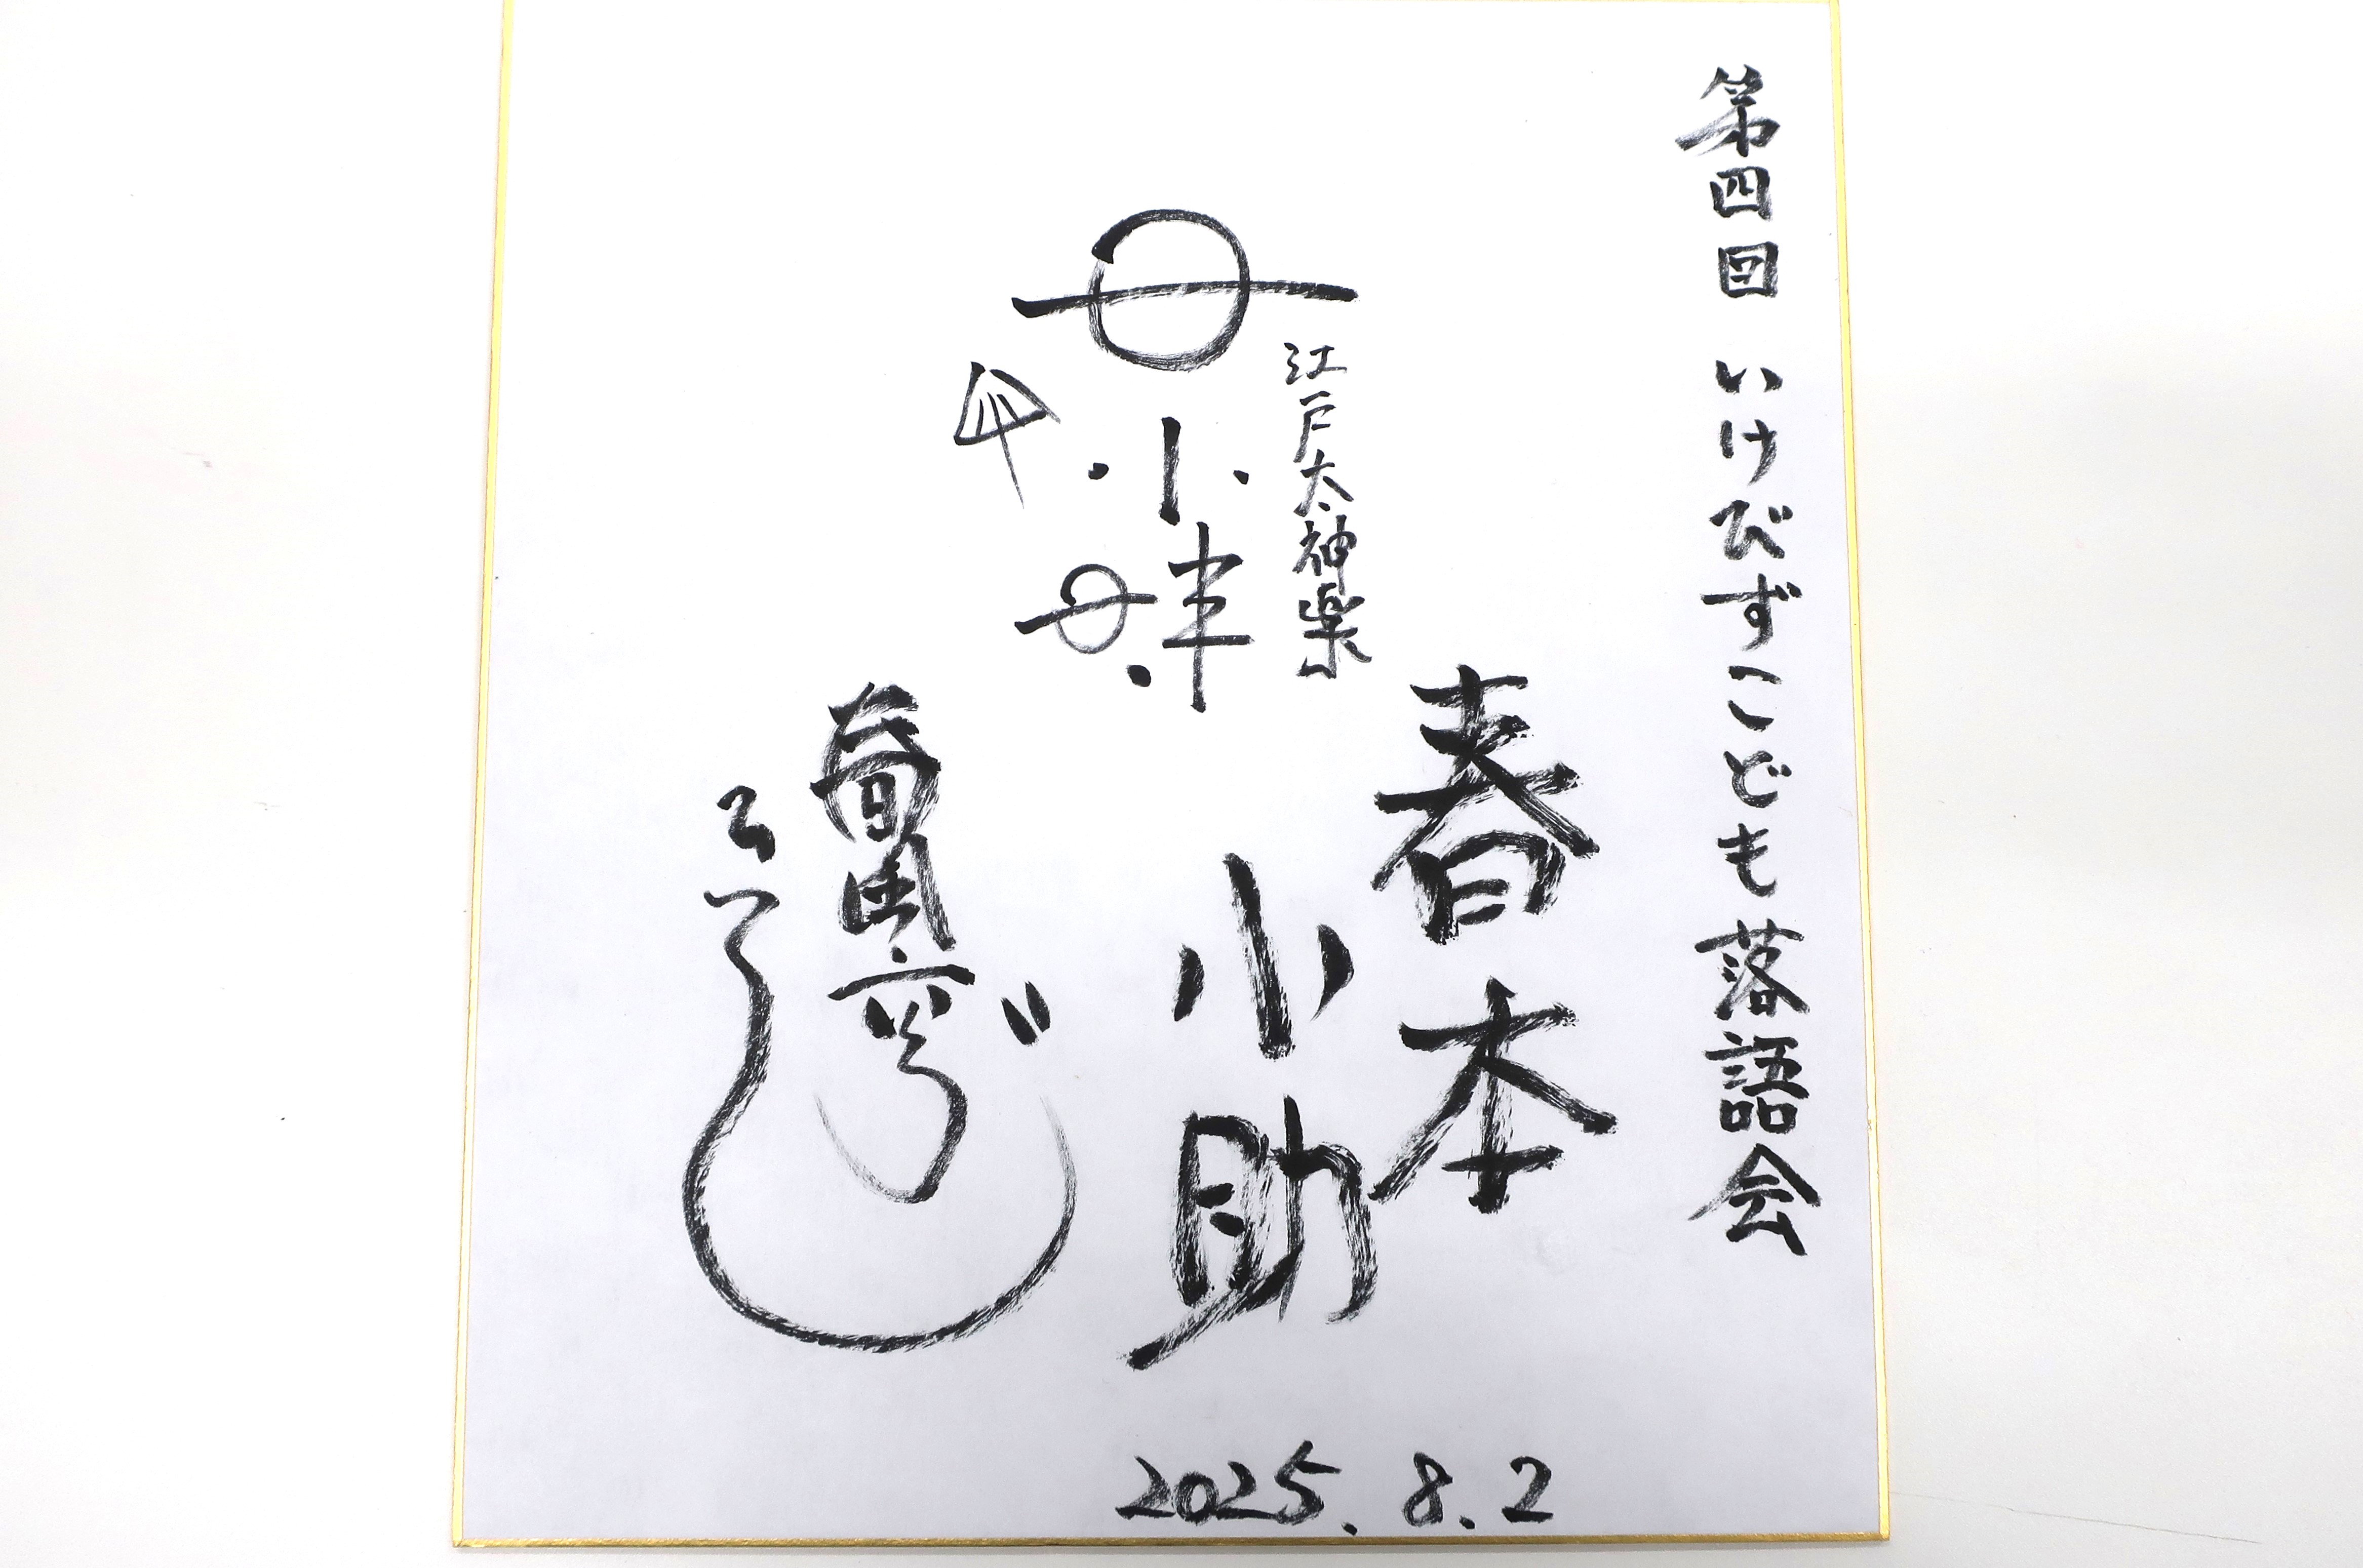 第四回 いけびずこども落語会
春本
小助
江戸太神楽
春風亭
2025.8.2